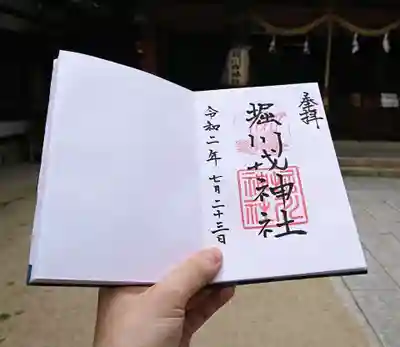 奉拝
堀川戎神社
令和二年 七月二十三日